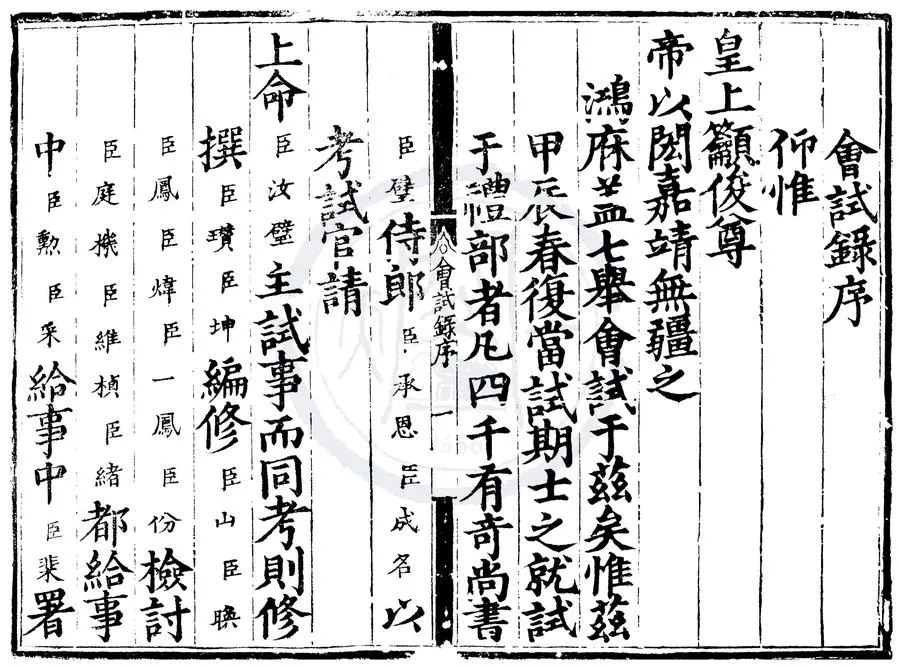 會試錄序
仰惟
皇上籲俊尊
帝以閎嘉靖無疆之
鴻庥葢七舉會試于茲矣惟茲
甲辰春復當試期士之就試
于禮部者凡四千有奇尚書
會試錄序 一
臣璧侍郎臣承恩臣成名以
考試官請
上命臣汝璧主試事而同考則修
撰臣瓚臣坤編修臣山臣㬇
臣鳳臣煒臣一鳳臣份檢討
臣庭機臣維楨臣緒都給事
中臣勲臣采給事中臣棐署